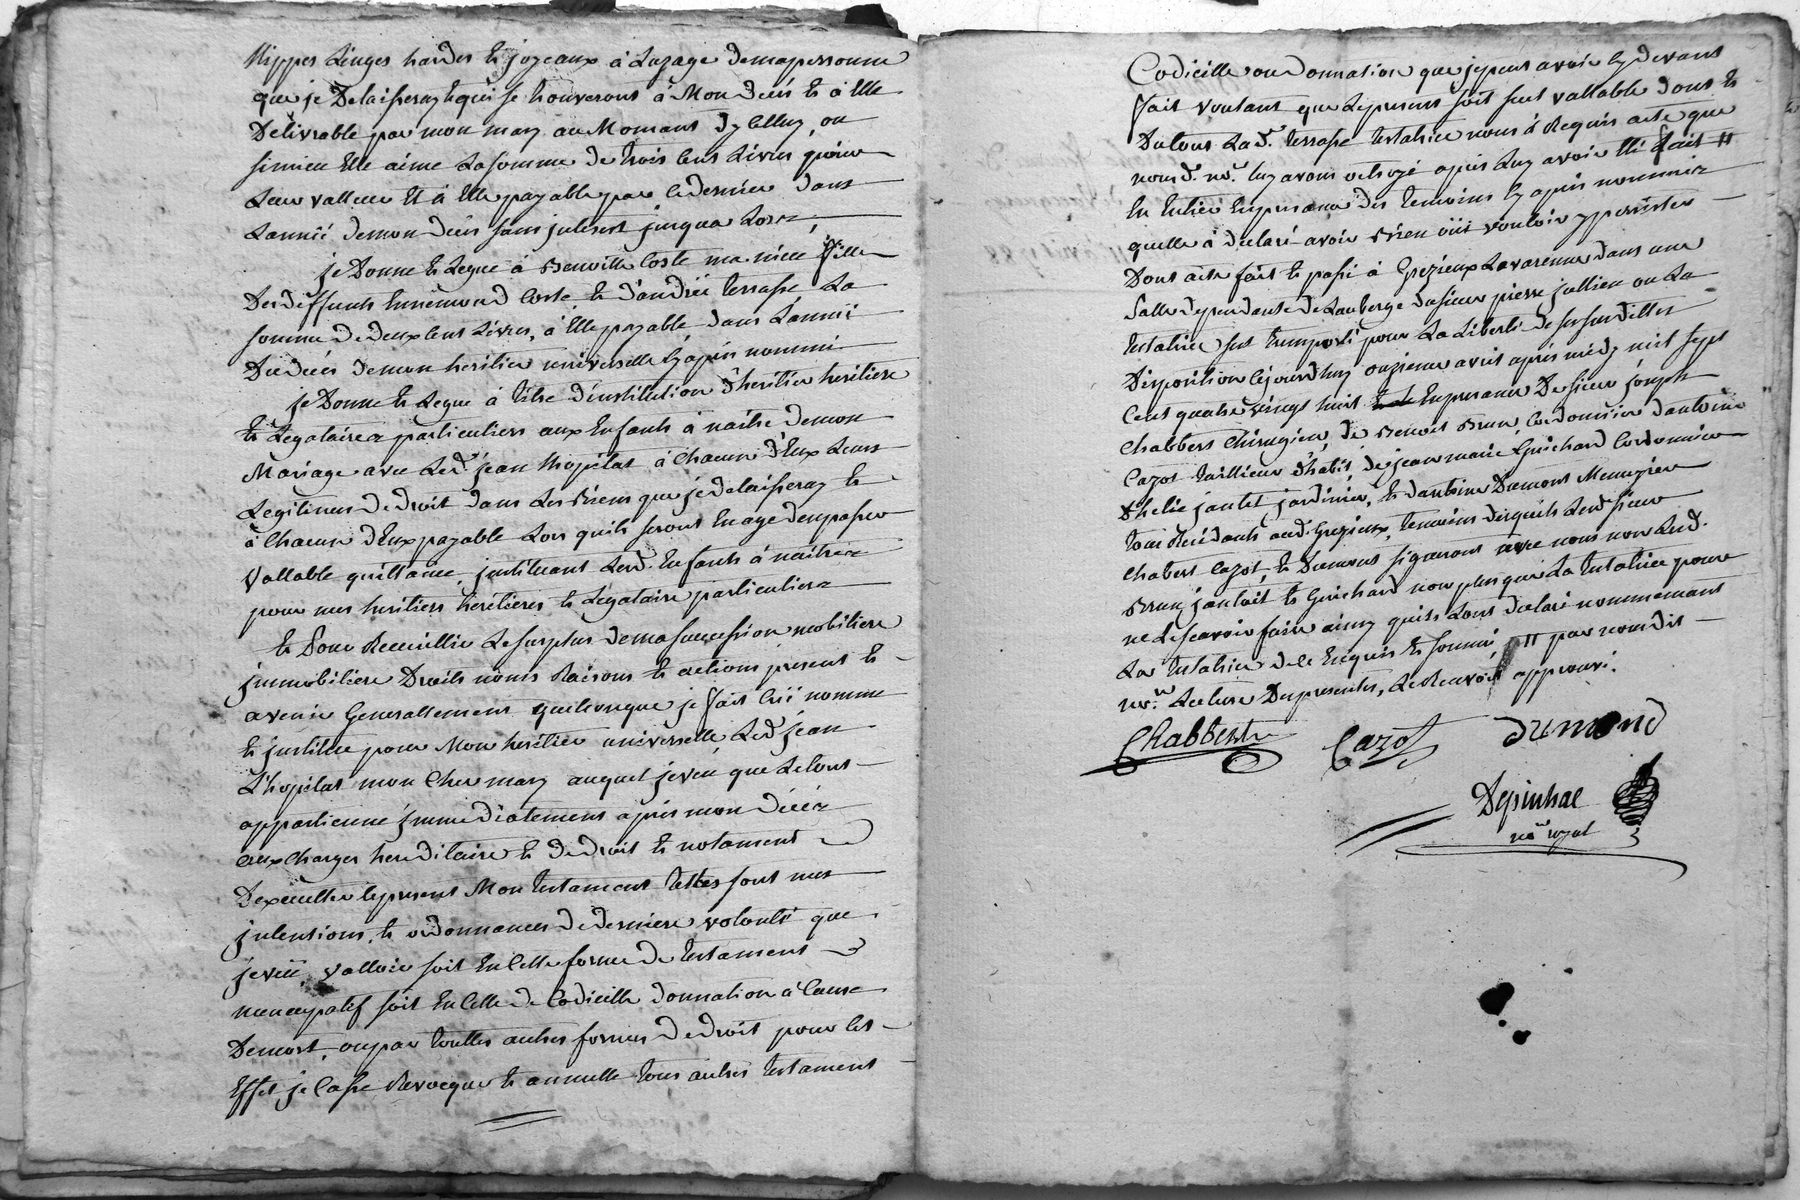 Nippes Linges hardes et joyeaux à Lusage demapersonne
que je Delaisseray Et qui se trouveront à Mon decès et à Elle
Delivrable par mon mary au Momant d'yCelluy, ou
simieu Elle aime La somme de trois Cens Livres pour
Leur valleur Et à Elle payable par ce dernier dans
Lannéé demon decès sans interest jusqua Lors,
je Donne et Legue à Benoitte Coste ma niece fille
Des deffunts Ennemond Coste et d'andréé terrasse La
somme de deux Cens Livres, à Elle payable dans Lannéé
Du decès demon heritier universelle Cy après nommé
je Donne et Legue à titre d'institution d'heritier heritiere
et Legataires particuliers aux Enfants à naitre demon
Mariage avec Led. jean Lhopital à Chacun d'Eux Leurs
Legitimes de droit dans Les Biens que je delaisseray et
à Chacun d'Eux payable Lors quils seront En age de passer
Vallable quittance, instituant Lesd. Enfants à naitre
pour mes heritiers heritieres et Legataire particuliers
Et Pour Recueillir Le surplus demasuccession mobiliere
immobiliere Droits noms Raisons et actions present et
avenir Generallement quelconque je fait Créé nomme
et institue pour Mon heritier universelle Led. jean
Lhopital mon Cher mary auquel je veu que Letout
appartienne immediatement après mon décés
aux Charges hereditaire et de droit et notament
D'execulter le present Mon testament telles sont mes
intentions et ordonnances de derniere volonté que
je veü valloir soit En Cette forme de testament
nuncupatif soit En Celle de Codicille donnation à Cause
De mort, ou par touttes autres formes de droit pour Cet
Effet je Casse Revoque et annulle tous autres testament
Codicille ou Donnation que je peut avoir Cy devant
fait voulant que Le present soit seul vallable dont et
Dutout Lad. terrasse testatrice nous à Requis acte que
nousd. nore. Luy avons octroyé après Luy avoir Été fait
En Entier En presence des temoins Cy après nommés
quelle à declaré avoir Bien oüi vouloir y persister
Dont acte fait et passé à Grezieux Lavarenne dans une
salle dependante de Lauberge du sieur pierre jullien ou La
testatrice sest transporté pour La Liberté de ses susdittes
Disposition Cejourdhuy onzieme avril après midy mil sept
Cent quatre vingt huit En presence De sieur joseph
Chabbert Chirugien, de Benoit Brun, Cordonnier d'antoine
Cazot tailleur d'habit, de jean marie Guichard Cordonnier
d'helie jantet jardinier, et d'antoine Dumont Menuzier
tous Residants aud. Grezieux, temoins desquels Lesd. sieur
Chabert Cazot, et Dumont signeront avec nous non Lesd.
Brun, jantait et Guichard non plus que La testatrice pour
ne Lesçavoir faire ainsy quils Lont declaré nommement
La testatrice de ce Enquis et sommé, par nousdit
nore. Lecture Du present, Le Renvoi approuvé.
Chabbert Cazot Dumond
Depinhac
nore royal